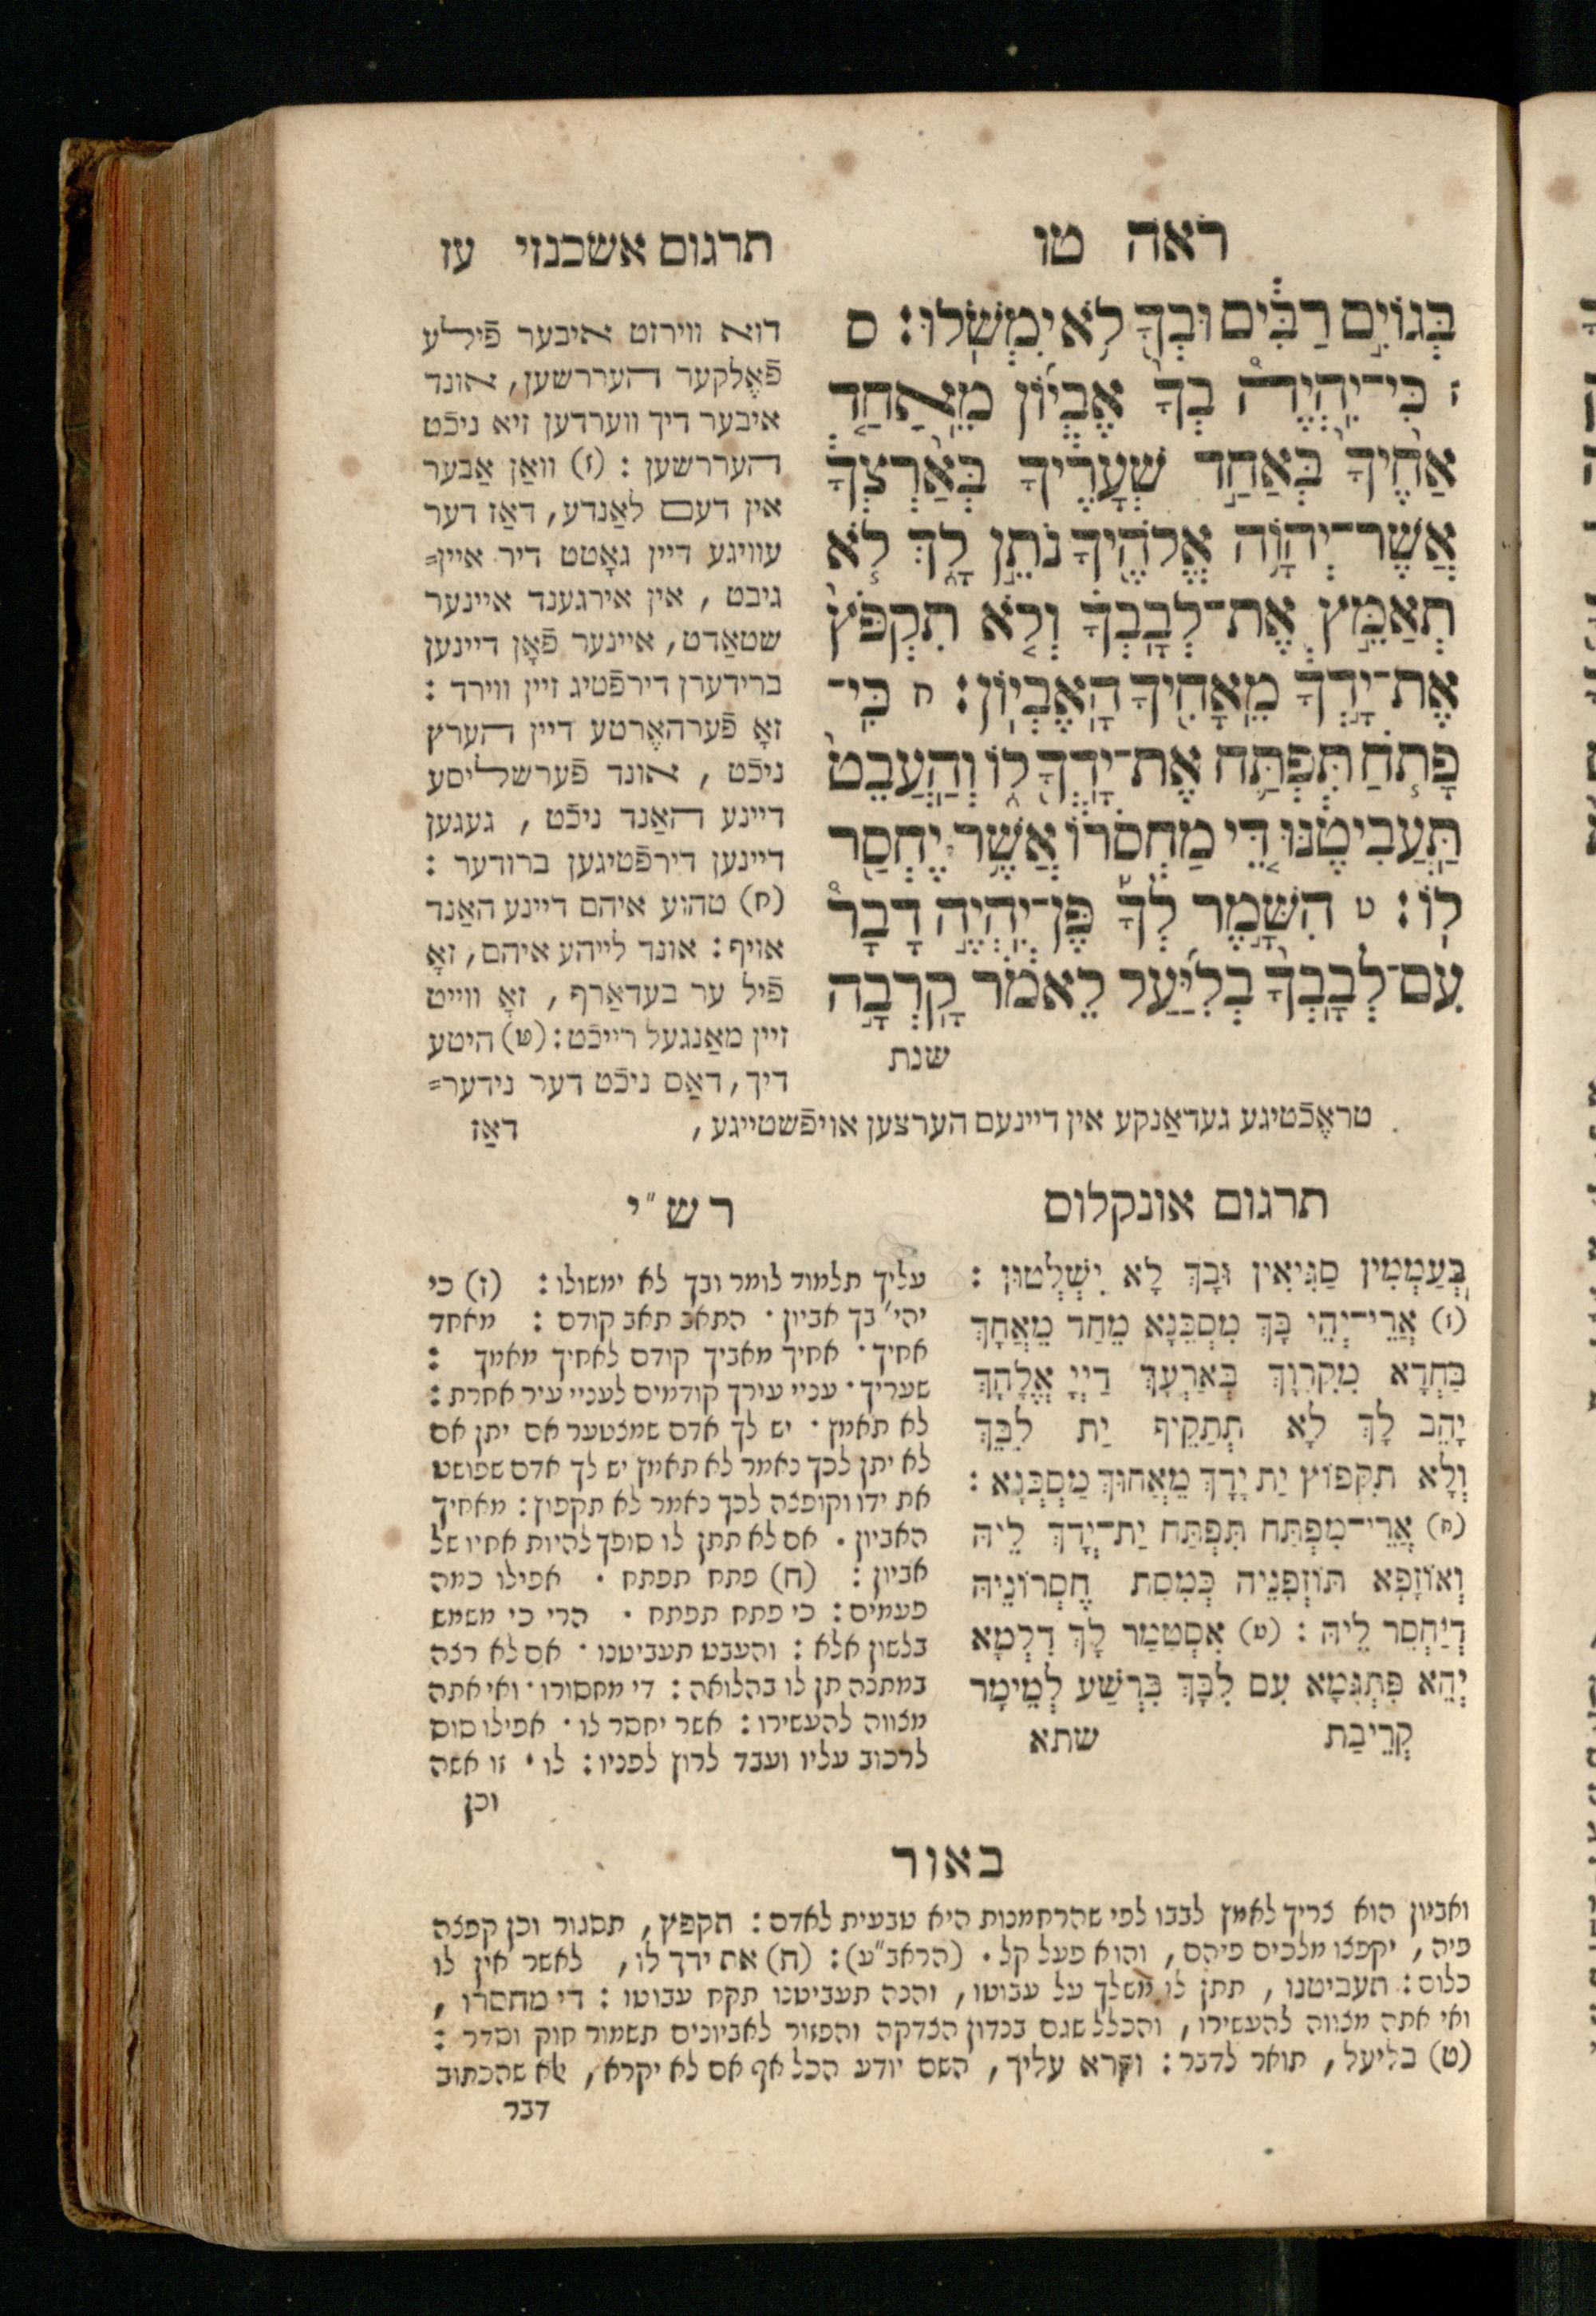 ראה טו
בְּגוֹיִ֣ם רַבִּ֔ים וּבְךָ֖ לֹ֥א יִמְשֹֽׁלוּ׃ ס
ז כִּֽי־יִֽהְיֶה֩ בְךָ֨ אֶבְי֜וֹן מֵֽאַחַ֤ד
אַחֶ֙יךָ֙ בְּאַחַ֣ד שְׁעָרֶ֔יךָ בְּאַ֨רְצְךָ֔
אֲשֶׁר־יְהוָ֥ה אֱלֹהֶ֖יךָ נֹתֵ֣ן לָ֑ךְ לֹ֧א
תְאַמֵּ֣ץ אֶת־לְבָֽבְךָ֗ וְלֹ֤א תִקְפֹּץ֙
אֶת־יָ֣דְךָ֔ מֵֽאָחִ֖יךָ הָֽאֶבְיֽוֹן׃ ח כִּֽי־
פָתֹ֧חַ תִּפְתַּ֛ח אֶת־יָֽדְךָ֖ ל֑וֹ וְהַֽעֲבֵט֙
תַּֽעֲבִיטֶ֔נּוּ דֵּ֚י מַחְסֹר֔וֹ אֲשֶׁ֥ר יֶחְסַ֖ר
לֽוֹ׃ ט הִשָּׁ֣מֶר לְךָ֡ פֶּן־יִֽהְיֶ֣ה דָבָר֩
עִם־לְבָֽבְךָ֨ בְלִיַּ֜עַל לֵאמֹ֗ר קָֽרְבָ֣ה
שנת
תרגום אשכנזי עז
דוא ווירזט איבער פֿילע
פֿאֶלקער העררשען, אונד
איבער דיך ווערדען זיא ניכֿט
העררשען : (ז) וואַן אַבער
אין דעם לאַנדע, דאַז דער
עוויגע דיין גאָטט דיר איין=
גיבט, אין אירגענד איינער
שטאַדט, איינער פֿאָן דיינען
ברידערן דירפֿטיג זיין ווירד :
זאָ פֿערהאֶרטע דיין הערץ
ניכֿט, אונד פֿערשליסע
דיינע האַנד ניכֿט, געגען
דיינען דירפֿטיגען ברודער :
(ח) טהוע איהם דיינע האַנד
אויף : אונד לייהע איהם, זאָ
פֿיל ער בעדאַרף, זאָ ווייט
זיין מאַנגעל רייכֿט : (ט) היטע
דיך, דאַס ניכֿט דער נידער=
טראֶכֿטיגע געדאַנקע אין דיינעם הערצען אויפֿשטייגע, דאַז
תרגום אונקלוס
בְּעַמְמִין סַגִּיאִין וּבָךְ לָא יִשְׁלְטוּן :
(ז) אֲרֵי־יְהֵי בָךְ מִסְכֵּנָא מֵחַד מֵאֲחָךְ
בַּחֲדָא מִקִּרְוָךְ בְּאַרְעָךְ דַּיְיָ אֱלָהָךְ
יָהֵב לָךְ לָא תְתַקֵיף יַת לִבָּךְ
וְלָא תִקְפּוֹץ יַת יְדָךְ מֵאֲחוּךְ מִסְכְּנָא :
(ח) אֲרֵי־מִפְתַּח תִּפְתַּח יַת־יְדָךְ לֵיהּ
וְאוֹזָפָא תוֹזְפִנֵּיהּ כְּמִסַּת חֶסְרוֹנֵיהּ
דְּיַחְסֵר לֵיהּ : (ט) אִסְתַּמַר לָךְ דִּלְמָא
יְהֵא פִתְגָּמָא עִם לִבָּךְ בִּרְשַׁע לְמֵימָר
קְרֵיבַת שתא
רש״י
עליך תלמוד לומר ובך לא ימשולו : (ז) כי
יהי׳ בך אביון · התאב תאב קודם : מאחד
אחיך · אחיך מאביך קודם לאחיך מאמך :
שעריך · עניי עירך קודמים לעניי עיר אחרת :
לא תאמץ · יש לך אדם שמצטער אם יתן אם
לא יתן לכך נאמר לא תאמץ יש לך אדם שפושט
את ידו וקופצה לכך נאמר לא תקפוץ : מאחיך
האביון · אם לא תתן לו סופך להיות אחיו של
אביון : (ח) פתח תפתח · אפילו כמה
פעמים : כי פתח תפתח · הרי כי משמש
בלשון אלא : והעבט תעביטנו · אם לא רצה
במתנה תן לו בהלואה : די מחסורו · ואי אתה
מצווה להעשירו : אשר יחסר לו · אפילו סוס
לרכוב עליו ועבד לרוץ לפניו : לו · זו אשה
וכן
באור
ואביון הוא צריך לאמץ לבבו לפי שהרחמנות היא טבעית לאדם : תקפץ, תסגור וכן קפצה
פיה, יקפצו מלכים פיהם, והוא פעל קל. (הראב״ע) : (ח) את ידך לו, לאשר אין לו
כלום : תעביטנו, תתן לו משלך על עבוטו, והנה תעביטנו תקח עבוטו : די מחסרו,
ואי אתה מצווה להעשירו, והכלל שגם בנדון הצדקה והפזור לאביונים תשמור חוק וסדר :
(ט) בליעל, תואר לדבר : וקרא עליך, השם יודע הכל אף אם לא יקרא, אלא שהכתוב
דבר